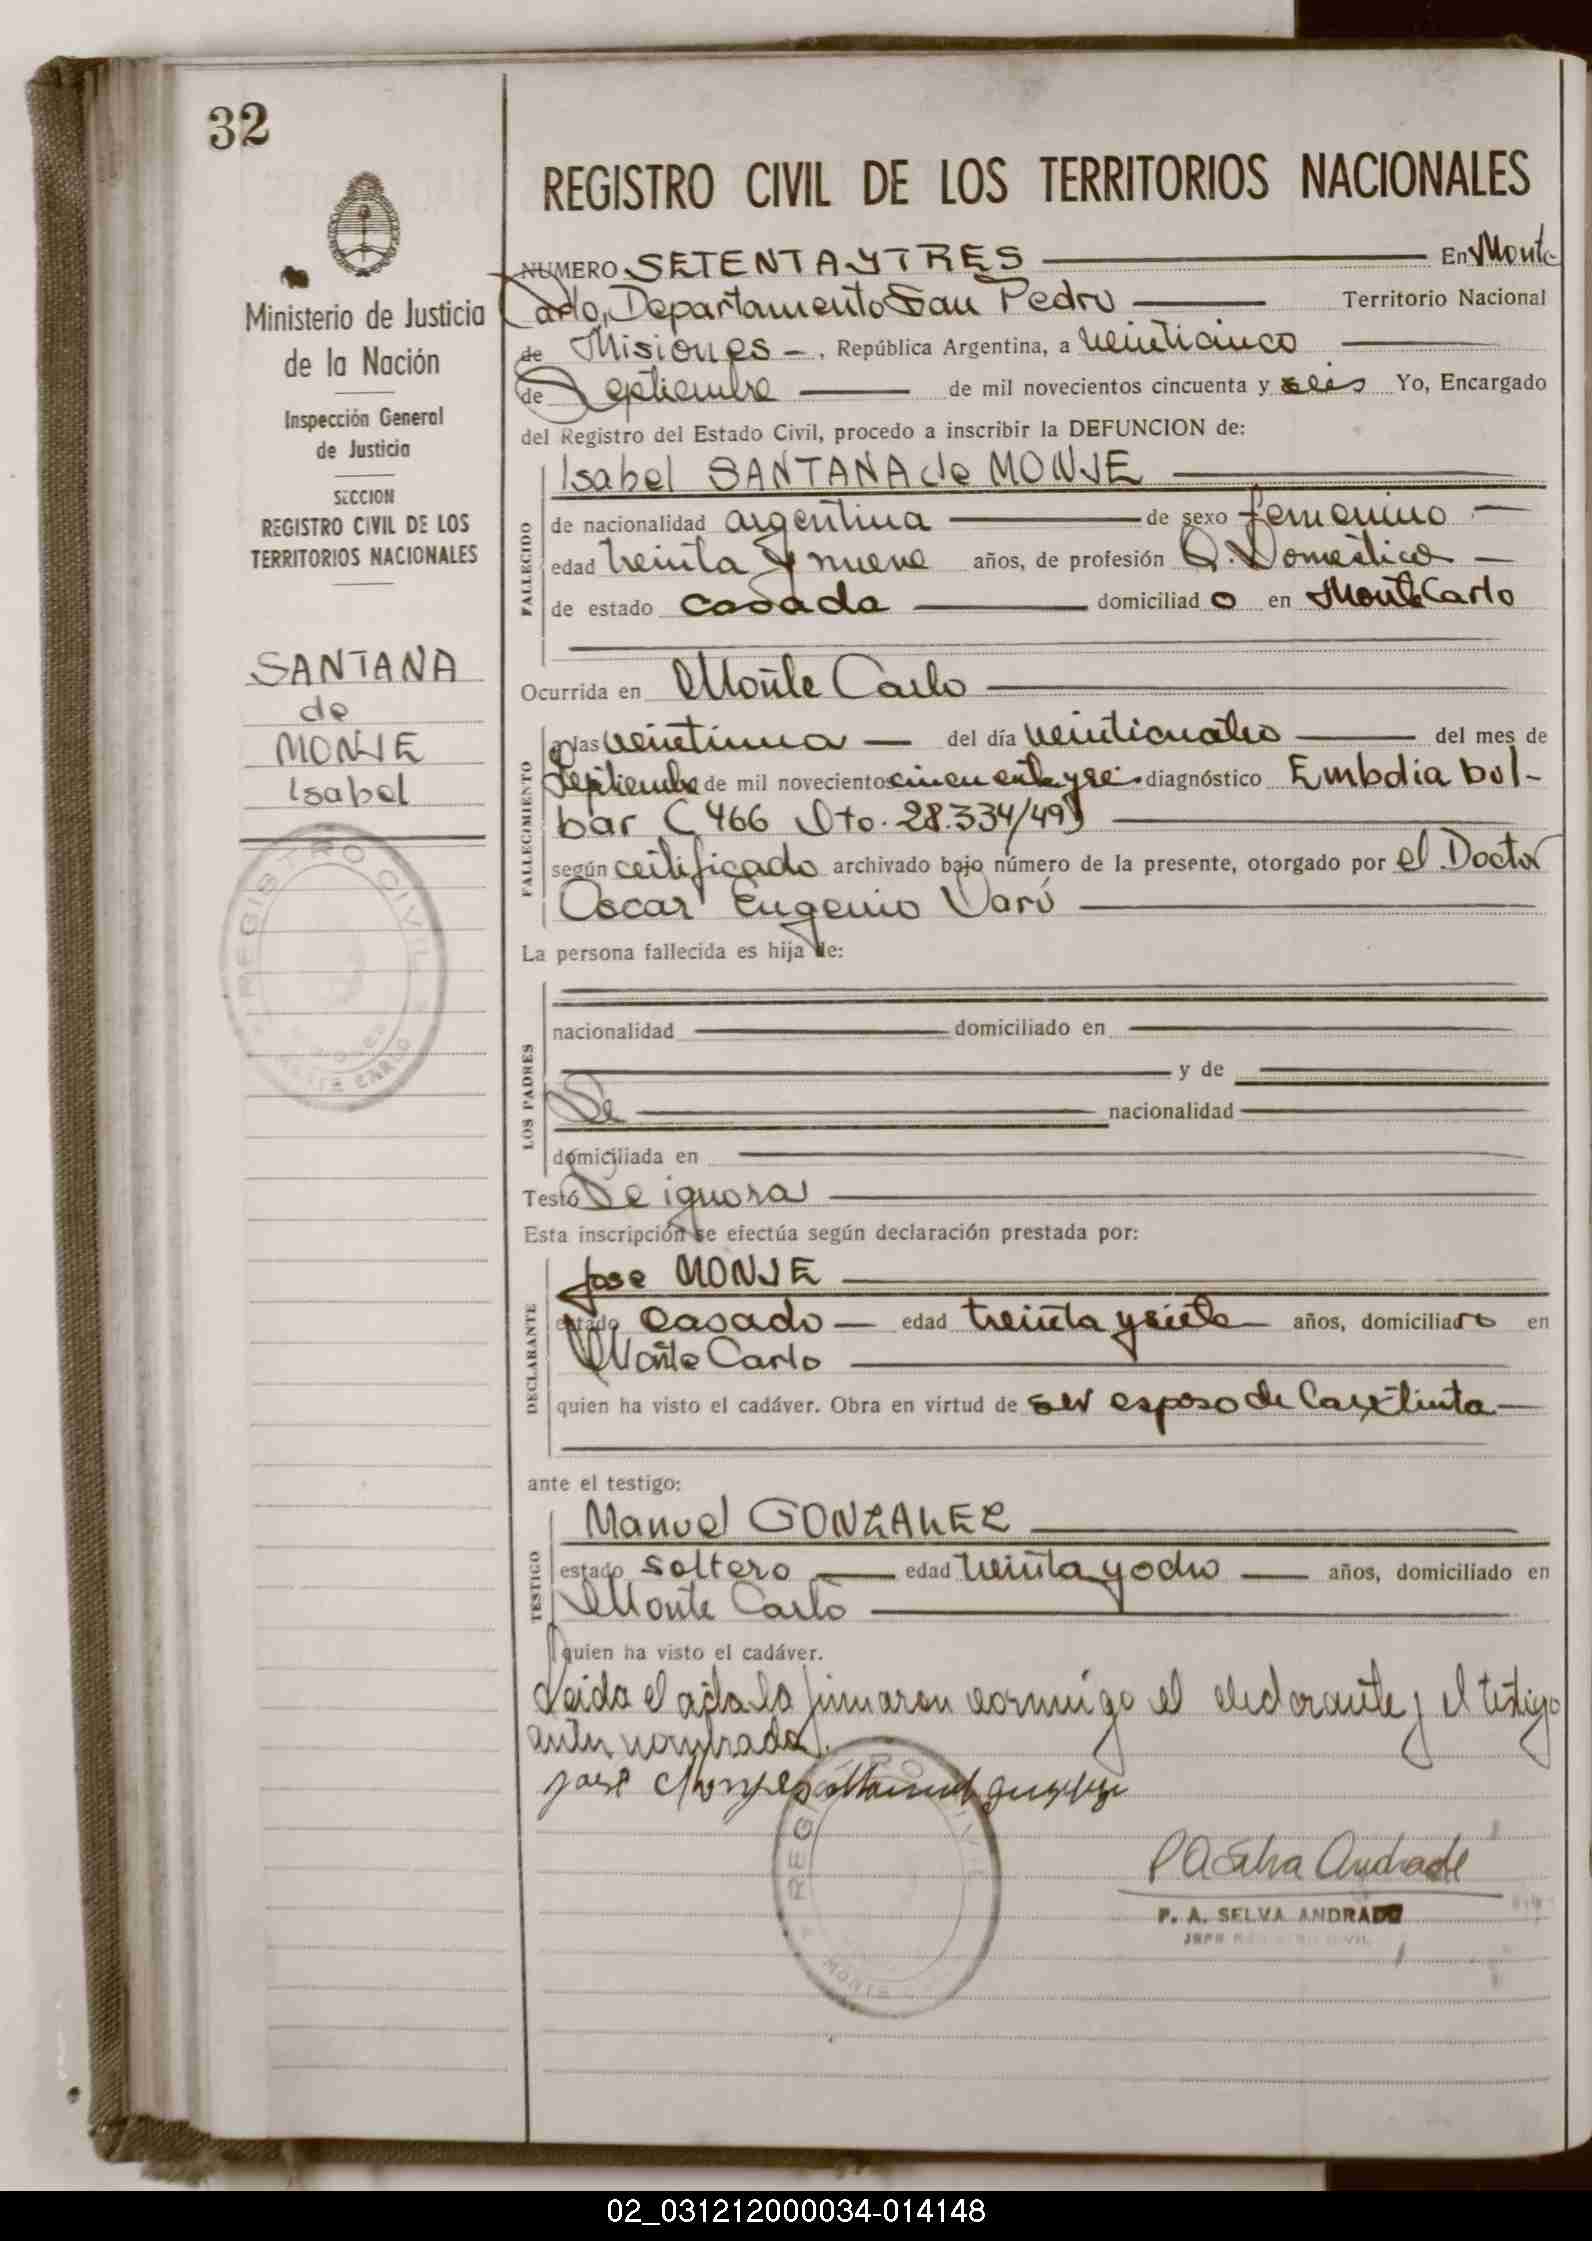 32
REGISTRO CIVIL DE LOS TERRITORIOS NACIONALES
Ministerio de Justicia
de la Nación
Inspección General
de Justicia
SECCION
REGISTRO CIVIL DE LOS
TERRITORIOS NACIONALES
SANTANA
de
MONJE
Isabel
REGISTRO CIVIL
MONTE CARLO
NUMERO SETENTA Y TRES En Monte
Carlo, Departamento San Pedro Territorio Nacional
de Misiones -, República Argentina, a veinticinco
de Septiembre de mil novecientos cincuenta y seis Yo, Encargado
del Registro del Estado Civil, procedo a inscribir la DEFUNCION de:
FALLECIDO
Isabel SANTANA de MONJE
de nacionalidad argentina de sexo femenino
edad treinta y nueve años, de profesión Q. Domestico
de estado casada domiciliado en Monte Carlo
Ocurrida en Monte Carlo
FALLECIMIENTO
a las veintiuna del día veinticuatro del mes de
Septiembre de mil novecientos cincuenta y sei. diagnóstico Embolia bul-
bar (466 Dto. 28.334/49)
según certificado archivado bajo número de la presente, otorgado por el Doctor
Oscar Eugenio Varú
La persona fallecida es hija de:
LOS PADRES
nacionalidad domiciliado en
y de
Se nacionalidad
domiciliada en
Testó Se ignora
Esta inscripción se efectúa según declaración prestada por:
DECLARANTE
Jose MONJE
estado casado edad treinta y siete años, domiciliado en
Monte Carlo
quien ha visto el cadáver. Obra en virtud de ser esposo de la extinta
ante el testigo:
TESTIGO
Manuel GONZALEZ
estado soltero edad treinta y ocho años, domiciliado en
Monte Carlo
quien ha visto el cadáver.
Leida el acta la firmaron conmigo el declarante y el testigo
antes nombrado.
José Monje Manuel
REGISTRO CIVIL
MONTE
P A Selva Andrade
P. A. SELVA ANDRADE
JEFE REGISTRO CIVIL
02_031212000034-014148